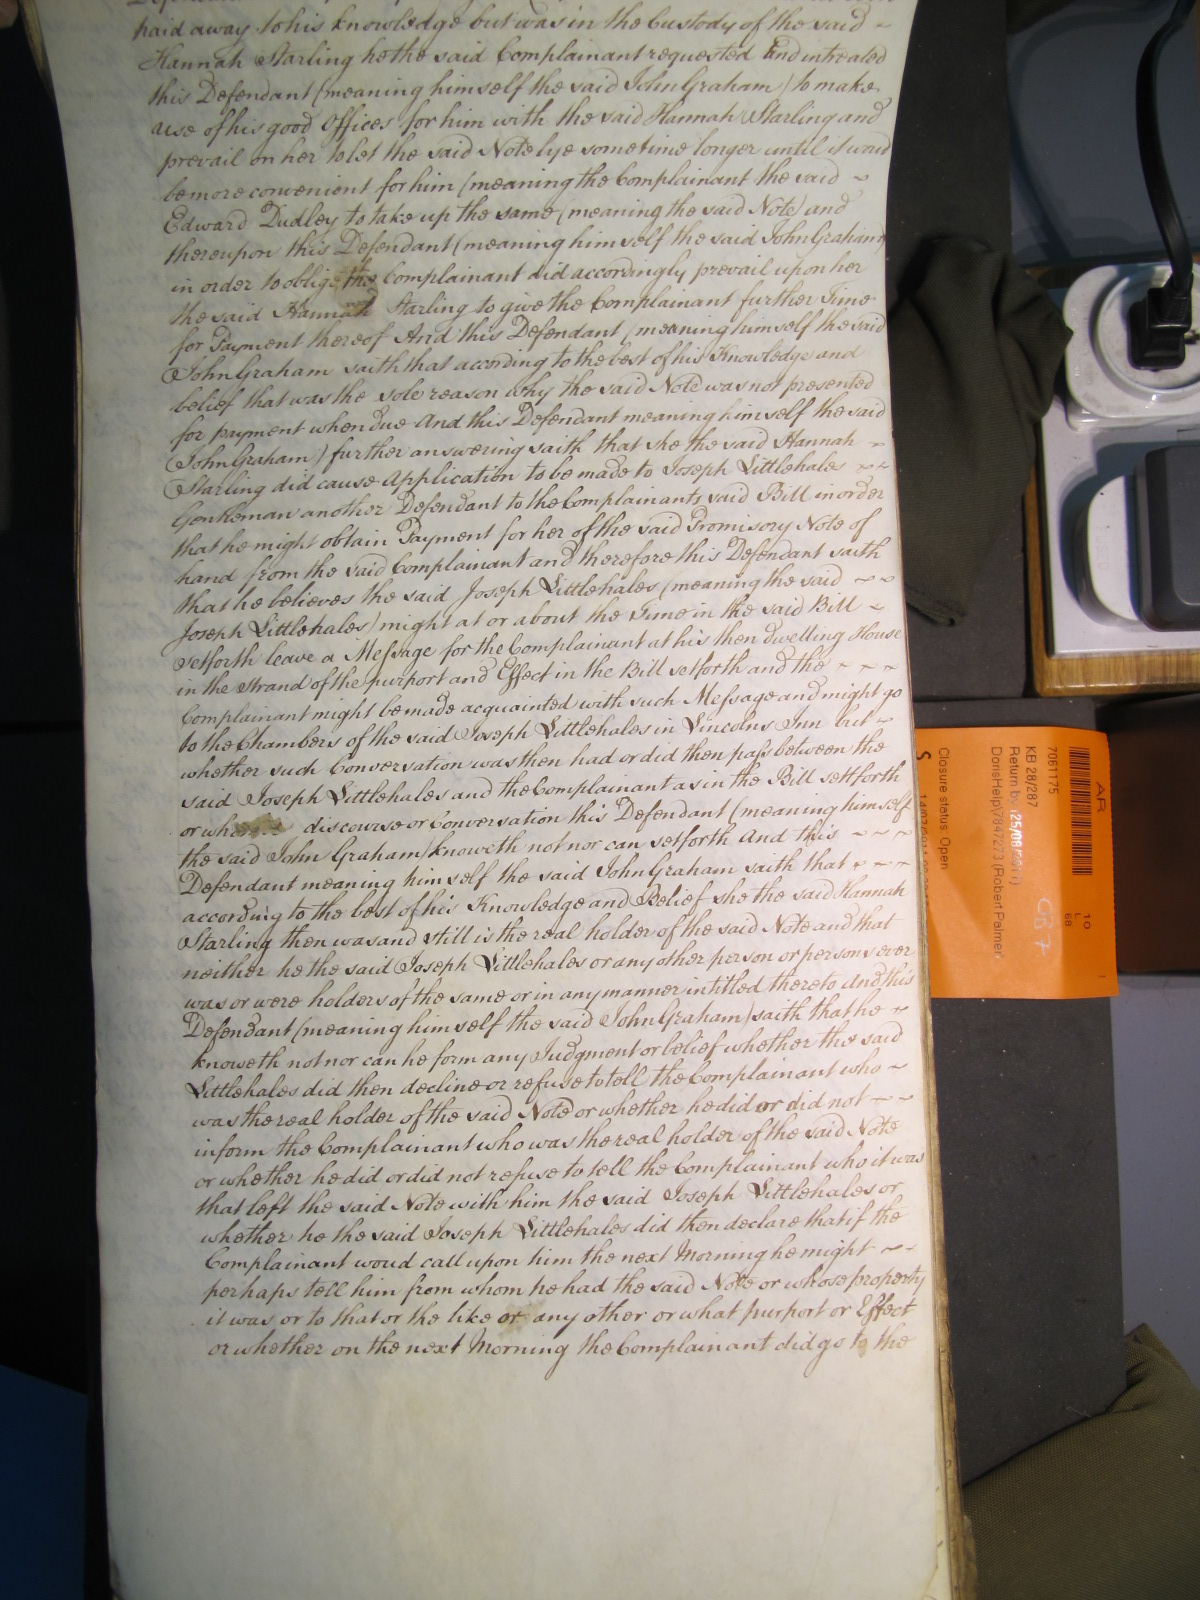 paid away to his knowledge but was in the Custody of the said ~
Hannah Starling he the said Complainant requested and intreated
this Defendant (meaning himself the said John Graham) to make
use of his good Offices for him with the said Hannah Starling and
prevail on her to let the said Note lye some time longer until it woud
be more convenient for him (meaning the Complainant the said ~
Edward Dudley to take up the same (meaning the said Note) and
thereupon this Defendant (meaning himself the said John Graham)
in order to oblige the Complainant did accordingly prevail upon her
the said Hannah Starling to give the Complainant further Time
for Payment thereof And this Defendant (meaning himself the said
John Graham saith that according to the best of his Knowledge and
belief that was the sole reason why the said Note was not presented
for payment when due And this Defendant meaning himself the said
(John Graham) further answering saith that she the said Hannah ~
Starling did cause Application to be made to Joseph Littlehales ~ ~
Gentleman another Defendant to the Complainants said Bill in order
that he might obtain Payment for her of the said Promisory Note of
hand from the said Complainant and therefore this Defendant saith
that he believes the said Joseph Littlehales (meaning the said ~ ~
Joseph Littlehales) might at or about the Time in the said Bill ~
setforth leave a Message for the Complainant at his then dwelling House
in the Strand of the purport and Effect in the Bill setforth and the ~ ~ ~
Complainant might be made acquainted with such Message and might go
to the Chambers of the said Joseph Littlehales in Lincolns Inn but ~
whether such Conversation was then had or did then pass between the
said Joseph Littlehales and the Complainant as in the Bill settforth
or discourse or Conversation this Defendant (meaning himself
the said John Graham) knoweth not nor can setforth And this ~ ~ ~
Defendant meaning himself the said John Graham saith that ~ ~ ~
according to the best of his Knowledge and Belief she the said Hannah
Starling then was and still is the real holder of the said Note and that
neither he the said Joseph Littlehales or any other person or persons ever
was or were holders of the same or in any manner intitled thereto And this
Defendant (meaning himself the said John Graham) saith that he ~
knoweth not nor can he form any Judgment or belief whether the said
Littlehales did then decline or refuse to tell the Complainant who ~
was the real holder of the said Note or whether he did or did not ~ ~
inform the Complainant who was the real holder of the said Note
or whether he did or did not refuse to tell the Complainant who it was
that left the said Note with him the said Joseph Littlehales or
whether he the said Joseph Littlehales did then declare that if the
Complainant woud call upon him the next Morning he might ~ ~
perhaps tell him from whom he had the said Note or whose property
it was or to that or the like or any other or what purport or Effect
or whether on the next Morning the Complainant did go to the
AR
10
L
68
7061175
KB 28/287
Return by (25/08/2011)
DorisHelp\7847273 (Robert Palmer
Closure status: Open
S